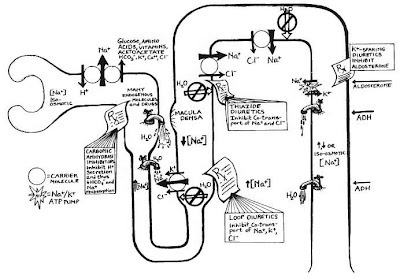 GLUCOSE, AMINO
ACIDS, VITAMINS,
ACETOACETATE
HCO3-, K+, Ca++, Cl-
Na+
H+
[Na+]
ISO-OSMOTIC
MANY
ENDOGENOUS
MOLECULES
AND DRUGS
Rx
CARBONIC
ANHYDRASE
INHIBITORS
INHIBIT H+
SECRETION
AND THUS
↓HCO3- AND
Na+
REABSORPTION
CARRIER
MOLECULE
Na+/K+
ATP PUMP
H2O
↑[Na+]
↑[Na+]
Na+
K+
Cl-
MACULA
DENSA
H2O
Na+
Cl-
Cl-
Na+
H2O
Rx
THIAZIDE
DIURETICS
INHIBIT CO-TRANS-
PORT OF Na+ AND Cl-
↓[Na+]
Rx
↑[Na+]
LOOP DIURETICS
INHIBIT CO-TRANS-
PORT OF Na+, K+,
Cl-
K+-SPARING
DIURETICS
INHIBIT
ALDOSTERONE
Rx
Na+
K+
ALDOSTERONE
H2O
ADH
↑,↓ OR
ISO-OSMOTIC
[Na+]
H2O
ADH